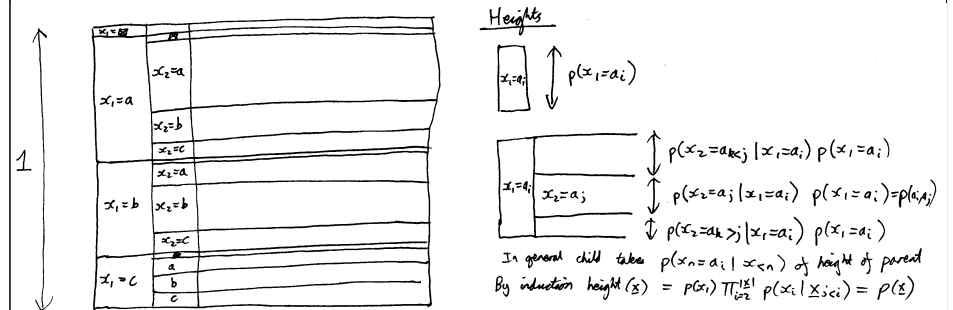 1
x₁=☒
☒
x₁=a
x₂=a
x₂=b
x₂=c
x₁=b
x₂=a
x₂=b
x₂=c
x₁=c
a
b
c
Heights
x₁=aᵢ
p(x₁=aᵢ)
x₁=aᵢ
x₂=aⱼ
p(x₂=a_{k<j} | x₁=aᵢ) p(x₁=aᵢ)
p(x₂=aⱼ | x₁=aᵢ) p(x₁=aᵢ)=p(aᵢaⱼ)
p(x₂=a_{k>j} | x₁=aᵢ) p(x₁=aᵢ)
In general child takes p(xₙ=aᵢ | x_{<n}) of height of parent
By induction height(x) = p(x₁) ∏_{i=2}^{|x|} p(xᵢ | x_{j<i}) = p(x)